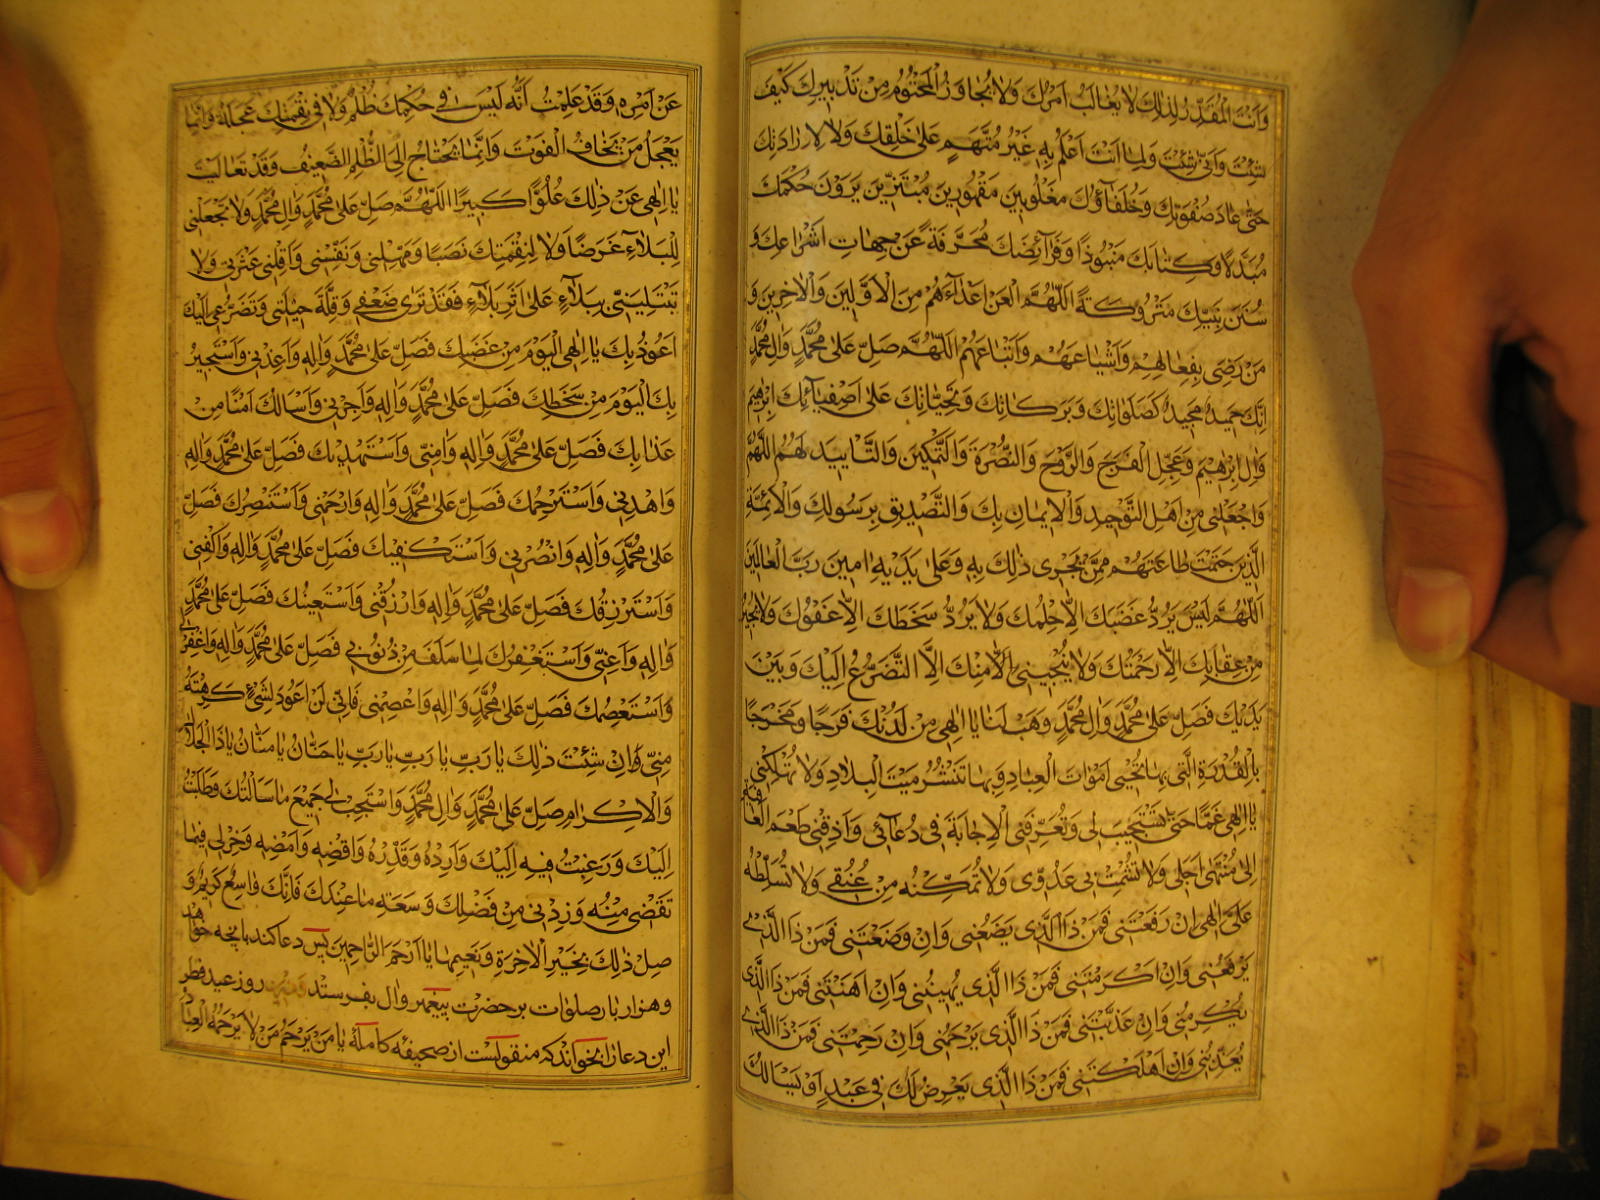 وَاَنْتَ الْمُقَدِّرُ لِذٰلِكَ لَا يُغَالَبُ اَمْرُكَ وَلَا يُجَاوَزُ الْمَحْتُومُ مِنْ تَدْبِيرِكَ كَيْفَ
شِئْتَ وَاَنّٰى شِئْتَ وَلِمَا اَنْتَ اَعْلَمُ بِهِ غَيْرُ مُتَّهَمٍ عَلٰى خَلْقِكَ وَلَا لِاِرَادَتِكَ
حَتّٰى عَادَ صَفْوَتُكَ وَخُلَفَآؤُكَ مَغْلُوبِينَ مَقْهُورِينَ مُبْتَزِّينَ يَرَوْنَ حُكْمَكَ
مُبَدَّلًا وَكِتَابَكَ مَنْبُوذًا وَفَرَآئِضَكَ مُحَرَّفَةً عَنْ جِهَاتِ اَشْرَاعِكَ وَ
سُنَنَ نَبِيِّكَ مَتْرُوكَةً اَللّٰهُمَّ الْعَنْ اَعْدَآءَهُمْ مِنَ الْاَوَّلِينَ وَالْاٰخِرِينَ وَ
مَنْ رَضِيَ بِفِعَالِهِمْ وَاَشْيَاعَهُمْ وَاَتْبَاعَهُمْ اَللّٰهُمَّ صَلِّ عَلٰى مُحَمَّدٍ وَاٰلِ مُحَمَّدٍ
اِنَّكَ حَمِيدٌ مَجِيدٌ كَصَلَوَاتِكَ وَبَرَكَاتِكَ وَتَحِيَّاتِكَ عَلٰى اَصْفِيَآئِكَ اِبْرٰهِيمَ
وَاٰلِ اِبْرٰهِيمَ وَعَجِّلِ الْفَرَجَ وَالرَّوْحَ وَالنُّصْرَةَ وَالتَّمْكِينَ وَالتَّأْيِيدَ لَهُمْ اَللّٰهُمَّ
وَاجْعَلْنِي مِنْ اَهْلِ التَّوْحِيدِ وَالْاِيمَانِ بِكَ وَالتَّصْدِيقِ بِرَسُولِكَ وَالْاَئِمَّةِ
الَّذِينَ حَتَمْتَ طَاعَتَهُمْ مِمَّنْ يَجْرِي ذٰلِكَ بِهِ وَعَلٰى يَدَيْهِ اٰمِينَ رَبَّ الْعَالَمِينَ
اَللّٰهُمَّ لَيْسَ يَرُدُّ غَضَبَكَ اِلَّا حِلْمُكَ وَلَا يَرُدُّ سَخَطَكَ اِلَّا عَفْوُكَ وَلَا يُجِيرُ
مِنْ عِقَابِكَ اِلَّا رَحْمَتُكَ وَلَا يُنْجِينِي مِنْكَ اِلَّا التَّضَرُّعُ اِلَيْكَ وَبَيْنَ
يَدَيْكَ فَصَلِّ عَلٰى مُحَمَّدٍ وَاٰلِ مُحَمَّدٍ وَهَبْ لَنَا يَا اِلٰهِي مِنْ لَدُنْكَ فَرَجًا وَمَخْرَجًا
بِالْقُدْرَةِ الَّتِي بِهَا تُحْيِي اَمْوَاتَ الْعِبَادِ وَبِهَا تَنْشُرُ مَيْتَ الْبِلَادِ وَلَا تُهْلِكْنِي
يَا اِلٰهِي غَمًّا حَتّٰى تَسْتَجِيبَ لِي وَتُعَرِّفَنِي الْاِجَابَةَ فِي دُعَآئِي وَاَذِقْنِي طَعْمَ الْعَافِيَةِ
اِلٰى مُنْتَهٰى اَجَلِي وَلَا تُشْمِتْ بِي عَدُوِّي وَلَا تُمَكِّنْهُ مِنْ عُنُقِي وَلَا تُسَلِّطْهُ
عَلَيَّ اِلٰهِي اِنْ رَفَعْتَنِي فَمَنْ ذَا الَّذِي يَضَعُنِي وَاِنْ وَضَعْتَنِي فَمَنْ ذَا الَّذِي
يَرْفَعُنِي وَاِنْ اَكْرَمْتَنِي فَمَنْ ذَا الَّذِي يُهِينُنِي وَاِنْ اَهَنْتَنِي فَمَنْ ذَا الَّذِي
يُكْرِمُنِي وَاِنْ عَذَّبْتَنِي فَمَنْ ذَا الَّذِي يَرْحَمُنِي وَاِنْ رَحِمْتَنِي فَمَنْ ذَا الَّذِي
يُعَذِّبُنِي وَاِنْ اَهْلَكْتَنِي فَمَنْ ذَا الَّذِي يَعْرِضُ لَكَ فِي عَبْدِكَ اَوْ يَسْأَلُكَ
عَنْ اَمْرِهِ وَقَدْ عَلِمْتُ اَنَّهُ لَيْسَ فِي حُكْمِكَ ظُلْمٌ وَلَا فِي نَقِمَتِكَ عَجَلَةٌ وَاِنَّمَا
يَعْجَلُ مَنْ يَخَافُ الْفَوْتَ وَاِنَّمَا يَحْتَاجُ اِلَى الظُّلْمِ الضَّعِيفُ وَقَدْ تَعَالَيْتَ
يَا اِلٰهِي عَنْ ذٰلِكَ عُلُوًّا كَبِيرًا اَللّٰهُمَّ صَلِّ عَلٰى مُحَمَّدٍ وَاٰلِ مُحَمَّدٍ وَلَا تَجْعَلْنِي
لِلْبَلَآءِ غَرَضًا وَلَا لِنِقْمَتِكَ نَصَبًا وَمَهِّلْنِي وَنَفِّسْنِي وَاَقِلْنِي عَثْرَتِي وَلَا
تَبْتَلِيَنِّي بِبَلَآءٍ عَلٰى اَثَرِ بَلَآءٍ فَقَدْ تَرٰى ضَعْفِي وَقِلَّةَ حِيلَتِي وَتَضَرُّعِي اِلَيْكَ
اَعُوذُ بِكَ يَا اِلٰهِي الْيَوْمَ مِنْ غَضَبِكَ فَصَلِّ عَلٰى مُحَمَّدٍ وَاٰلِهِ وَاَعِذْنِي وَاَسْتَجِيرُ
بِكَ الْيَوْمَ مِنْ سَخَطِكَ فَصَلِّ عَلٰى مُحَمَّدٍ وَاٰلِهِ وَاَجِرْنِي وَاَسْأَلُكَ اَمْنًا مِنْ
عَذَابِكَ فَصَلِّ عَلٰى مُحَمَّدٍ وَاٰلِهِ وَاٰمِنِّي وَاَسْتَهْدِيكَ فَصَلِّ عَلٰى مُحَمَّدٍ وَاٰلِهِ
وَاهْدِنِي وَاَسْتَرْحِمُكَ فَصَلِّ عَلٰى مُحَمَّدٍ وَاٰلِهِ وَارْحَمْنِي وَاَسْتَنْصِرُكَ فَصَلِّ
عَلٰى مُحَمَّدٍ وَاٰلِهِ وَانْصُرْنِي وَاَسْتَكْفِيكَ فَصَلِّ عَلٰى مُحَمَّدٍ وَاٰلِهِ وَاكْفِنِي
وَاَسْتَرْزِقُكَ فَصَلِّ عَلٰى مُحَمَّدٍ وَاٰلِهِ وَارْزُقْنِي وَاَسْتَعِينُكَ فَصَلِّ عَلٰى مُحَمَّدٍ
وَاٰلِهِ وَاَعِنِّي وَاَسْتَغْفِرُكَ لِمَا سَلَفَ مِنْ ذُنُوبِي فَصَلِّ عَلٰى مُحَمَّدٍ وَاٰلِهِ وَاغْفِرْ لِي
وَاَسْتَعْصِمُكَ فَصَلِّ عَلٰى مُحَمَّدٍ وَاٰلِهِ وَاعْصِمْنِي فَاِنِّي لَنْ اَعُودَ لِشَيْءٍ كَرِهْتَهُ
مِنِّي اِنْ شِئْتَ ذٰلِكَ يَا رَبِّ يَا رَبِّ يَا رَبِّ يَا حَنَّانُ يَا مَنَّانُ يَا ذَا الْجَلَالِ
وَالْاِكْرَامِ صَلِّ عَلٰى مُحَمَّدٍ وَاٰلِ مُحَمَّدٍ وَاسْتَجِبْ لِي جَمِيعَ مَا سَأَلْتُكَ وَطَلَبْتُ
اِلَيْكَ وَرَغِبْتُ فِيهِ اِلَيْكَ وَاَرِدْهُ وَقَدِّرْهُ وَاقْضِهِ وَاَمْضِهِ وَخِرْ لِي فِيمَا
تَقْضِي مِنْهُ وَزِدْنِي مِنْ فَضْلِكَ وَسَعَةِ مَا عِنْدَكَ فَاِنَّكَ وَاسِعٌ كَرِيمٌ وَ
صِلْ ذٰلِكَ بِخَيْرِ الْاٰخِرَةِ وَنَعِيمِهَا يَا اَرْحَمَ الرَّاحِمِينَ پس دعا كند بانچه خواهد
وهزار بار صلوات بر حضرت پیغمبر وال بفرستد روز عید فطر
این دعا را بخواند که منقولست از صحیفهٔ کامله يَا مَنْ يَرْحَمُ مَنْ لَا يَرْحَمُهُ الْعِبَادُ